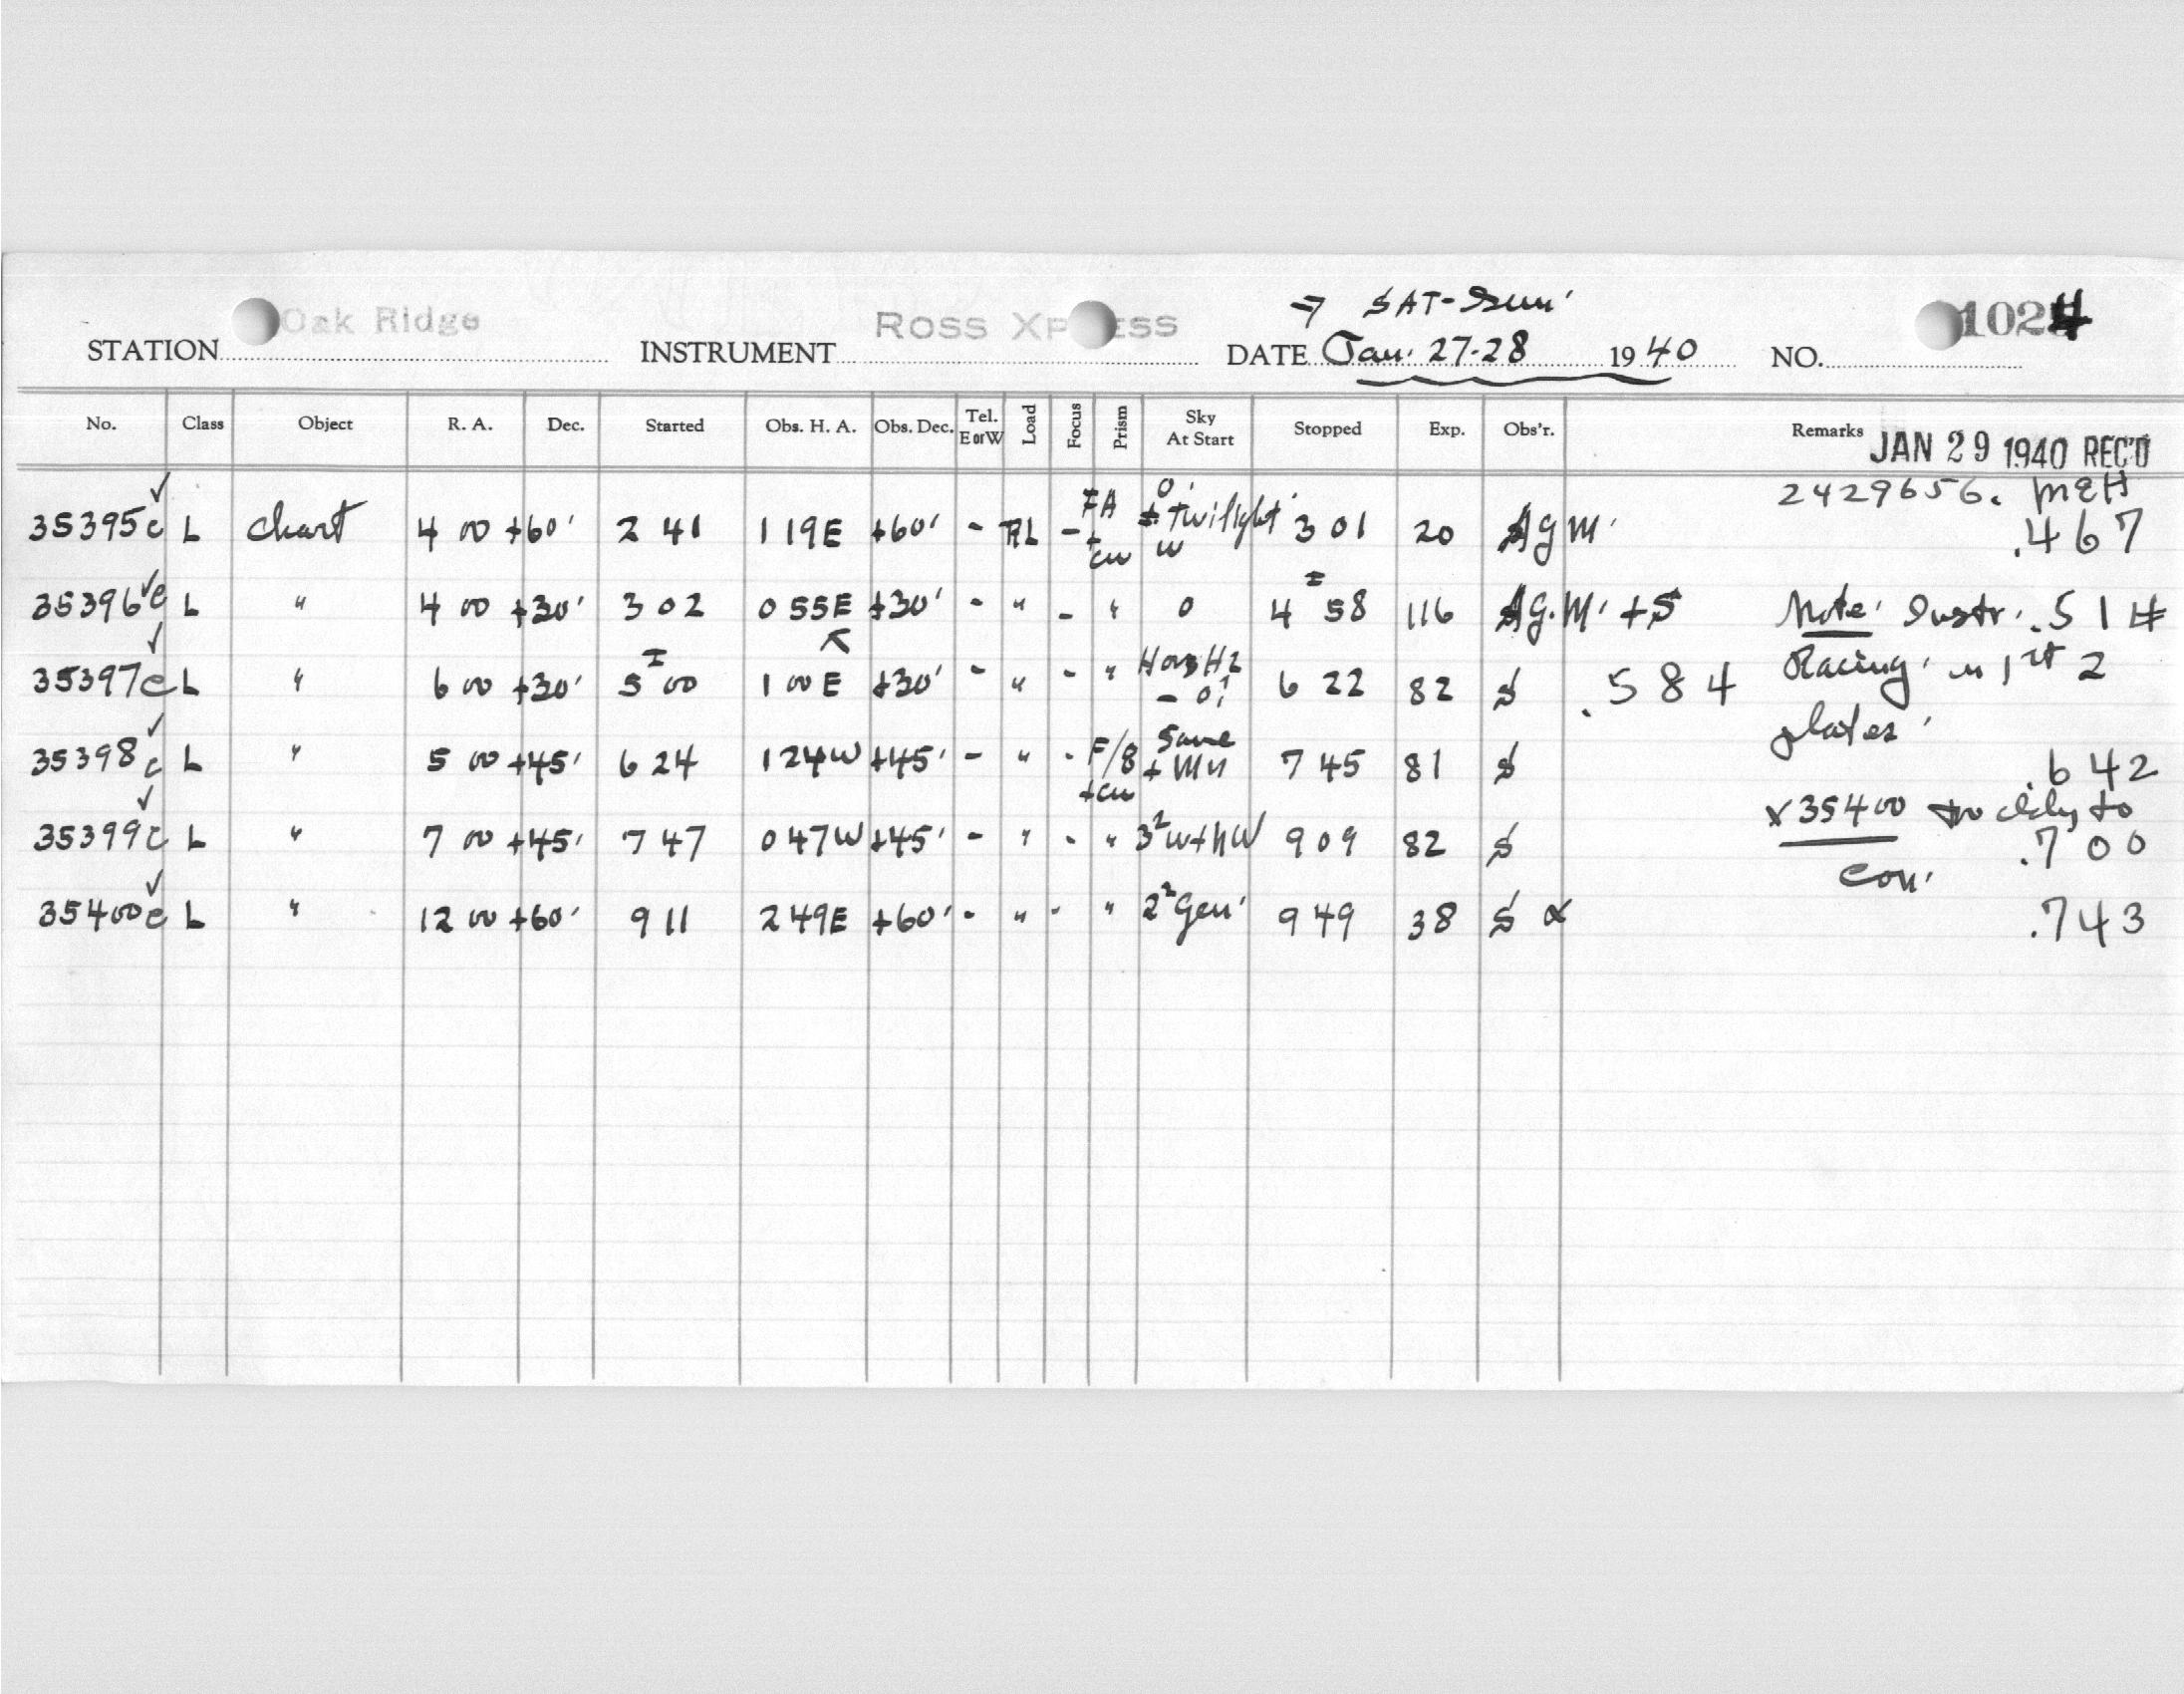 ⇒ SAT-Sun'
STATION Oak Ridge INSTRUMENT ROSS XPRESS DATE Jan. 27-28 1940 NO. 1024
No. Class Object R. A. Dec. Started Obs. H. A. Obs. Dec. Tel. E or W Load Focus Prism Sky At Start Stopped Exp. Obs'r. Remarks JAN 29 1940 REC'D
2429656. MEH
35395c ✓ L Chart 4 00 +60' 2 41 119E +60' - RL - FA + cw 0' + twilight' W 3 01 20 AGM' .467
35396c ✓ L " 4 00 +30' 3 02 055E +30' - " - " 0 4 58 116 AG.M' +S Note' Instr. .514
35397c ✓ L " 6 00 +30' 5 00 1 00E +30' - " - " - 0? 6 22 82 S .584 Racing' in 1st 2
plates'
35398c ✓ L " 5 00 +45' 6 24 124W +45' - " - F/8 +cw Same + Mn 7 45 81 S .642
x 35400 to
35399c ✓ L " 7 00 +45' 7 47 047W +45' - " - " 3² W+hW 9 09 82 S .700
con'
35400c ✓ L " 12 00 +60' 9 11 249E +60' - " - " 2² Gen' 9 49 38 S x .743